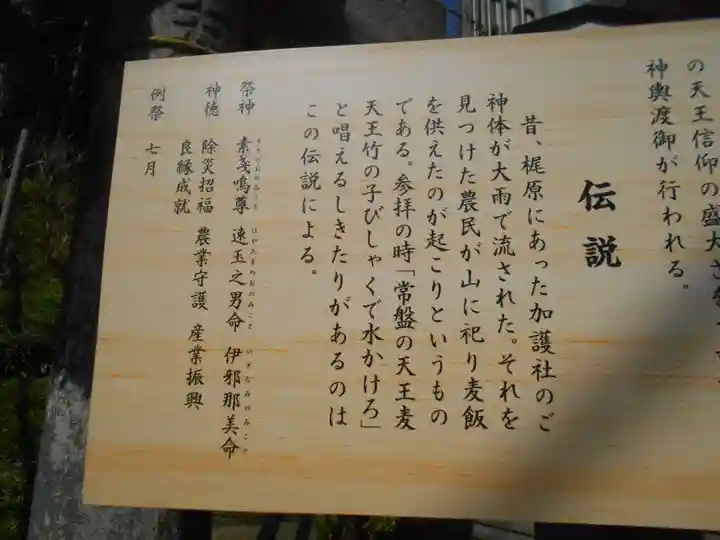 の天王信仰の盛大さ
神輿渡御が行われる。
伝説
昔、梶原にあった加護社のご
神体が大雨で流された。それを
見つけた農民が山に祀り麦飯
を供えたのが起こりというもの
である。参拝の時「常盤の天王麦
天王竹の子びしゃくで水かけろ」
と唱えるしきたりがあるのは
この伝説による。
祭神 素戔嗚尊 速玉之男命 伊邪那美命
すさのおのみこと はやたまのおのみこと いざなみのみこと
神徳 除災招福 農業守護 産業振興
良縁成就
例祭 七月